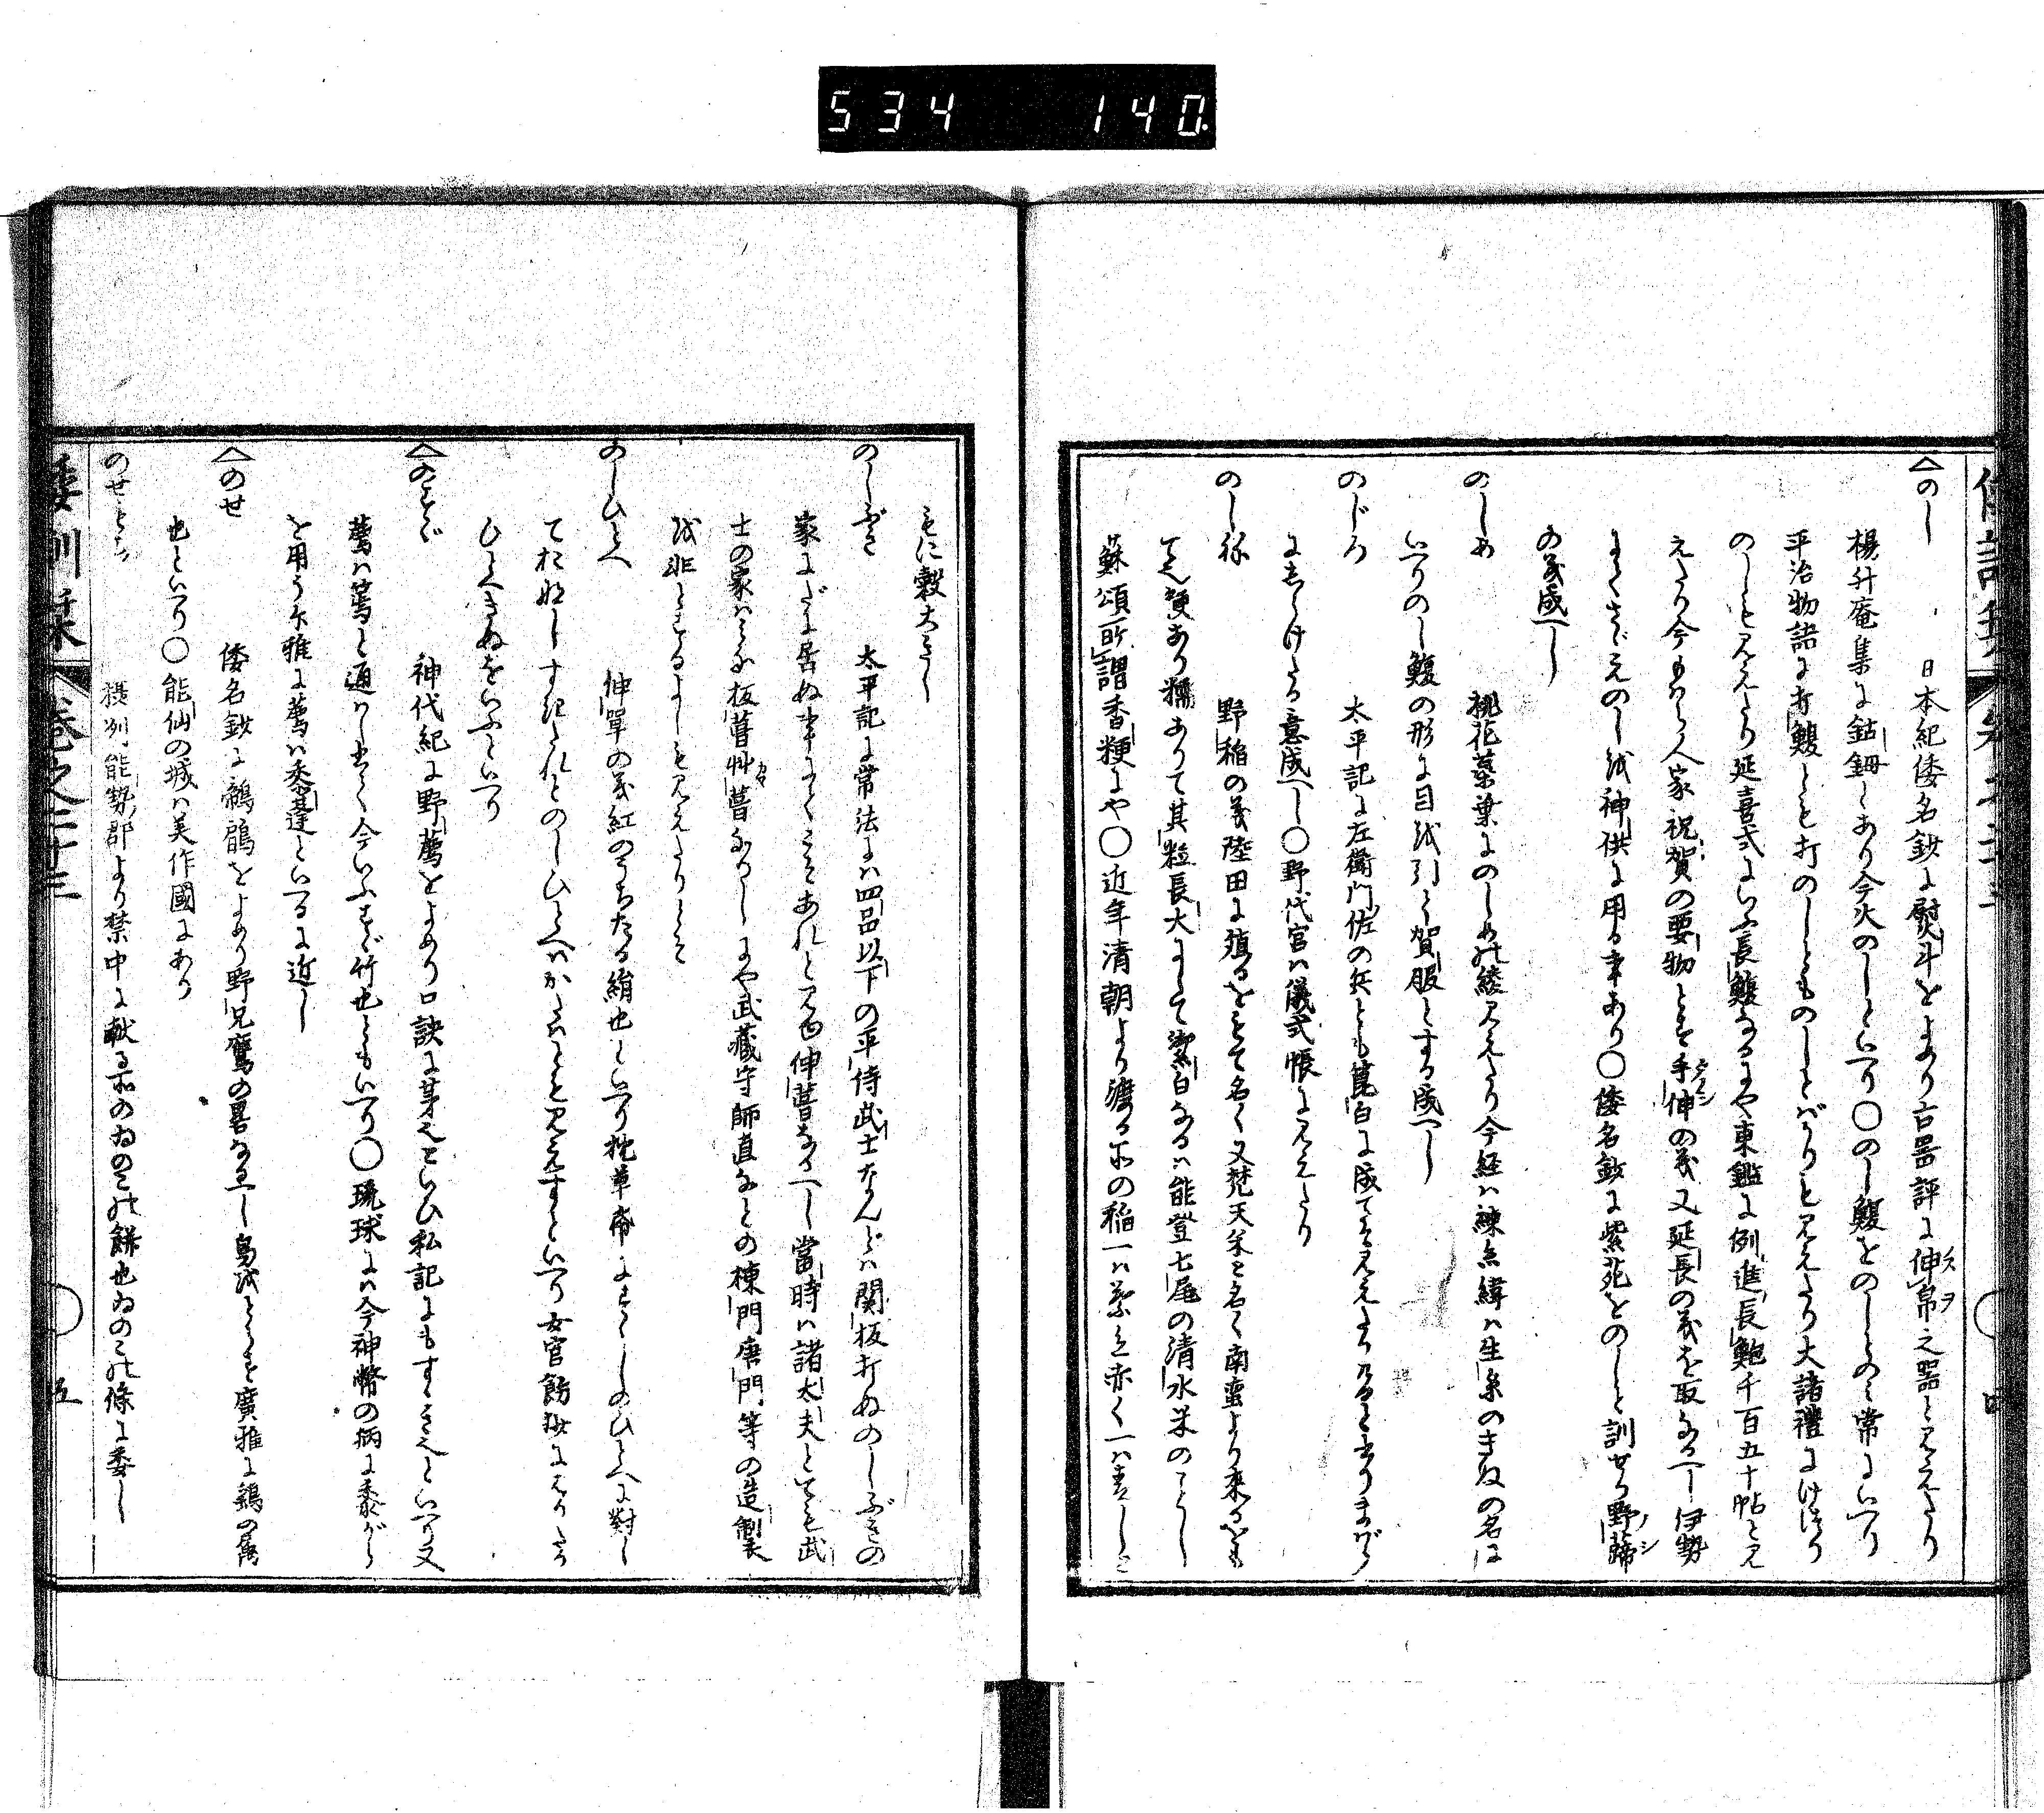 534 140.
へのし 日本紀倭名鈔に熨斗をよめり古器評に伸帛之器と見えたり
楊升庵集に鈷鉧とあり今火のしといへり〇のし鰒をのしとのミ常にいへり
平治物語に打鰒とも打のしとものしとばかりも見えたり大諸禮にけづり
のしとも見えたり延喜式にいふ長鰒なるにや東鑑に例進長鮑千百五十帖と見
えたり今もはら人家祝賀の要物とす手伸の義又延長の義を取なるへし伊勢
にてさゞえのしを神供に用る事あり〇倭名鈔に紫苑をのしと訓せり野蹄
の義成へし
のしめ 桃花蘂葉にのしめの綾見えたり今経は練糸緯は生糸のきぬの名に
いへりのし鰒の形に目を引く賀服とする成へし
のじろ 太平記に左衛門佐の兵とも箟白に成てと見えたり
にしらけたる意成へし〇野代官は儀式帳に見えたり
のし稲 野稲の義陸田に殖るをもて名く又梵天米と名く南蛮より来るをも
て也糭あり糯ありて其粒長大にして潔白なるは能登七尾の清水米のことし
蘇頌所謂香粳にや〇近年清朝より渡る所の稲一は葉立赤く一は青しと
もに穀大きし
のしぶき 太平記に常法には四品以下の平侍武士なんどは関板打ぬのしぶきの
家にだに居ぬ事にてこそあれと見ゆ伸葺なるへし當時は諸太夫とても武
士の家はミな板葺艸葺なりしにや武藏守師直なとの棟門唐門等の造製
を非とするよしも見えたりとそ
のしひとへ 伸單の義紅のうちたる絹也といへり枕草帋にすゝしのひとへに對し
てたねりすれとのしひとへはかたはとと見えすといへり女官飾抄にはりたる
ひとへきぬをいふといへり
へのすゞ 神代紀に野薦をよめり口訣に茅也といひ私記にもすゝき也といへり又
薦は篶と通はし書く今いふすゞ竹也ともいへり〇琉球には今神幣の柄に黍がら
を用う尓雅に薦は黍蓬といへるに近し
へのせ 倭名鈔に鸕鶿をよめり野兄鷹の畧なるへし鳥をとらす廣雅に鷂の屬
也といへり〇能仙の城は美作國にあり
のせもち 攝州能勢郡より禁中に献る所のゐのこの餅也ゐのこの條に委し
倭訓栞 巻之二十三 五